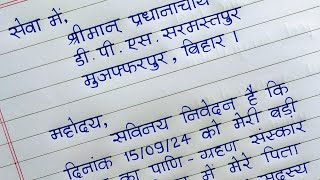 सेवा में,
श्रीमान् प्रधानाचार्य
डी. पी. एस. सरमस्तपुर
मुजफ्फरपुर, बिहार।
महोदय,
सविनय निवेदन है कि
दिनांक 15/09/24 को मेरी बड़ी
का पाणि-ग्रहण संस्कार
में मेरे पिता
सदस्य